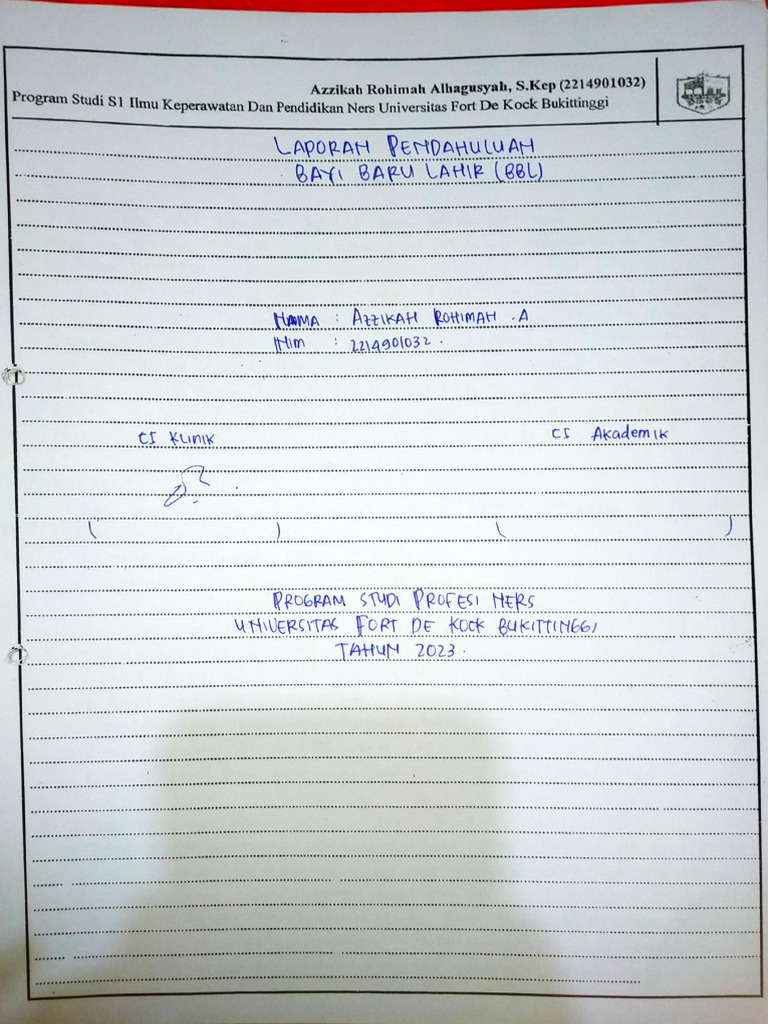 Azzikah Rohimah Alhagusyah, S.Kep (2214901032)
Program Studi S1 Ilmu Keperawatan Dan Pendidikan Ners Universitas Fort De Kock Bukittinggi
LAPORAN PENDAHULUAN
BAYI BARU LAHIR (BBL)
NAMA : AZZIKAH ROHIMAH .A
NIM : 2214901032.
CI Klinik CI Akademik
( ) ( )
PROGRAM STUDI PROFESI NERS
UNIVERSITAS FORT DE KOCK BUKITTINGGI
TAHUN 2023.